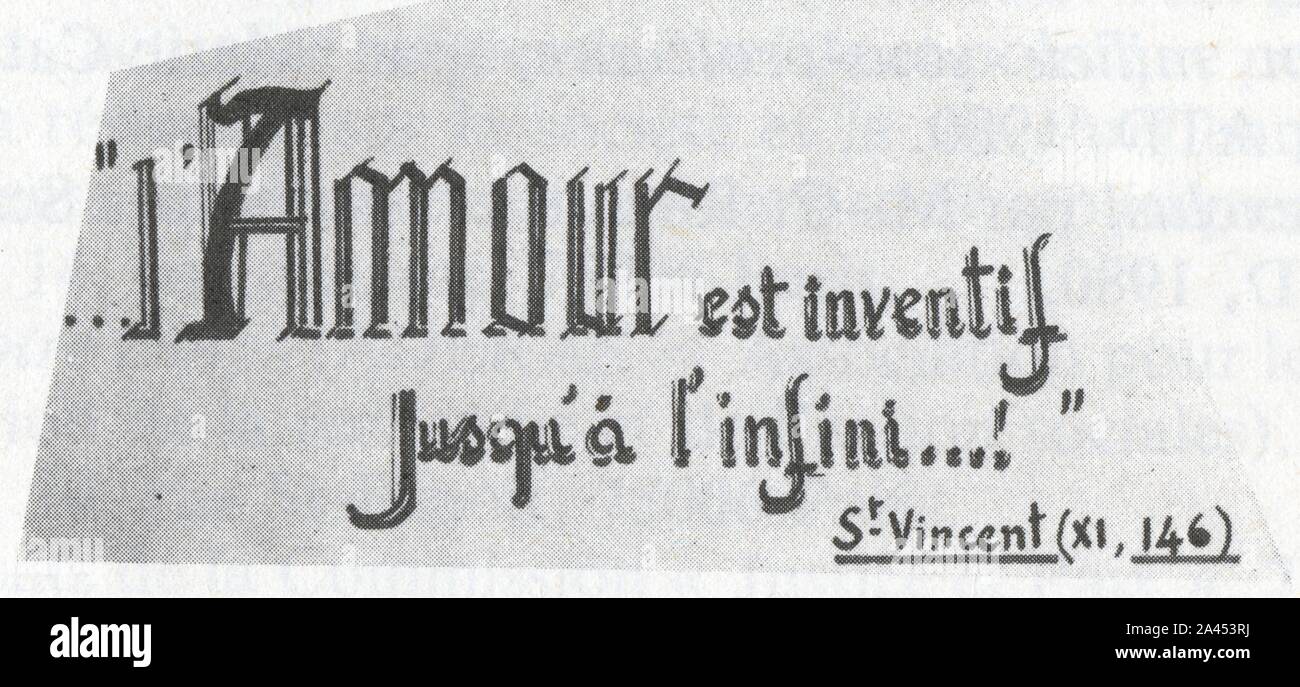 "...l'Amour est inventif
Jusqu'á l'infini...!"
St Vincent (XI, 146)
alamy
Image ID: 2A453RJ
www.alamy.com